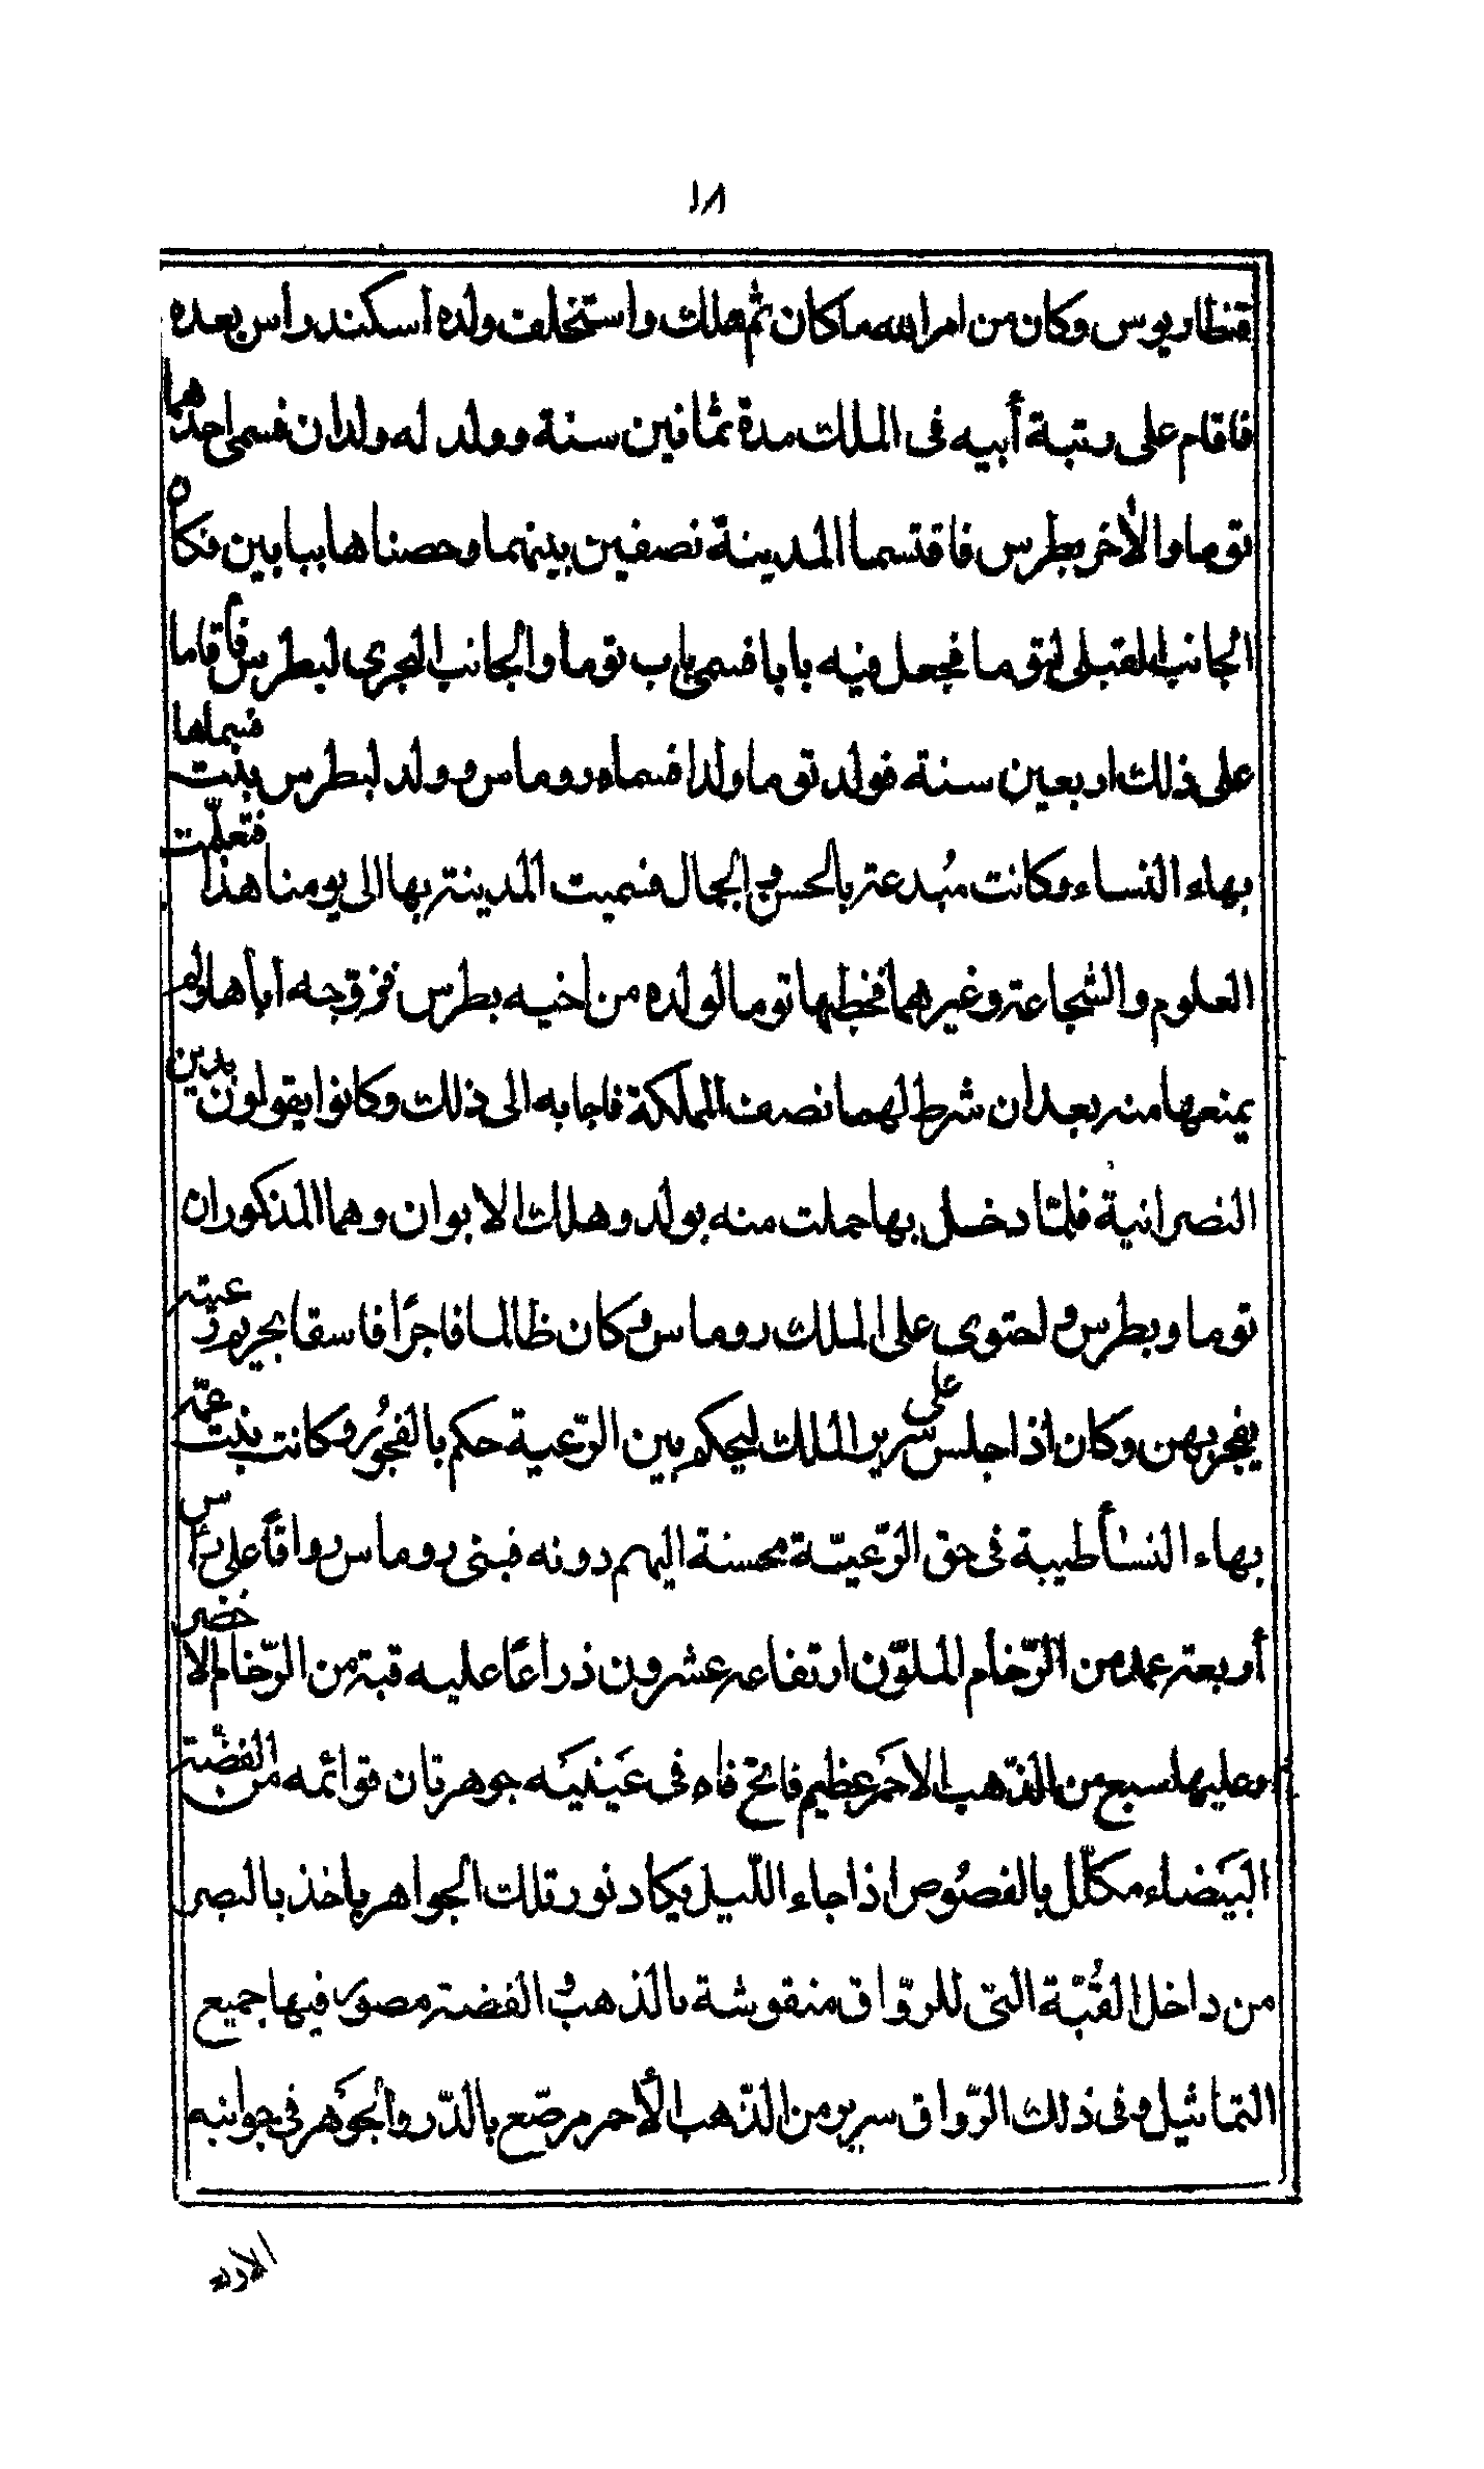 ١٨
قنطاريوس وكان من امر الله ما كان ثم هلك واستخلف ولده اسكندراس بعده
فاقام على رتبة أبيه فى الملك مدة ثمانين سنة وولد له ولدان فسمى احدهما
توما والأخر بطرس فاقتسما المدينة نصفين بينهما وحصناها ببابين فكان
الجانب القبلى لتوما فجعل فيه بابا فسمى باب توما والجانب البحرى لبطرس فأقاما
على ذلك اربعين سنة فولد توما ولدا فسماه روماس وولد لبطرس بنت فسماها
بهاء النساء وكانت مُبدعة بالحسن والجمال فسميت المدينة بها الى يومنا هذا فتعلّمت
العلوم والشجاعة وغيرهما فخطبها توما لولده من اخيه بطرس فزوجه اباها ولم
يمنعها منه بعد ان شرط لهما نصف المملكة فاجابه الى ذلك وكانوا يقولون بدين
النصرانية فلمّا دخل بها حملت منه بولد وهلك الابوان وهما المذكوران
توما وبطرس واحتوى على الملك روماس وكان ظالما فاجرًا فاسقا بحريم رعيته
يفجر بهن وكان اذا جلس على سرير الملك ليحكم بين الرّعية حكم بالفجُور وكانت بنت عمّه
بهاء النسأ طيبة فى حق الرّعيّة محسنة اليهم دونه فبنى روماس رواقاً على رأس
أربعة عمد من الرّخام الملوّن ارتفاعه عشرون ذراعًا عليه قبة من الرّخام الاخضر
وعليها سبع من الذّهب الاحَمر عظيم فاتح فاه فى عَينيَه جوهرتان قوائمه من الفضّة
البَيَضاء مكلّل بالفصُوص اذا جاء اللّيل يكاد نور تلك الجواهر ياخذ بالبصر
من داخل القُبّة التى للروّاق منقوشة بالذهب والفضة مصور فيها جميع
التماثيل وفى ذلك الرّواق سرير من الذّهب الأحمر مرصّع بالدّر والجوَهر فى جوانبه
الاربعه